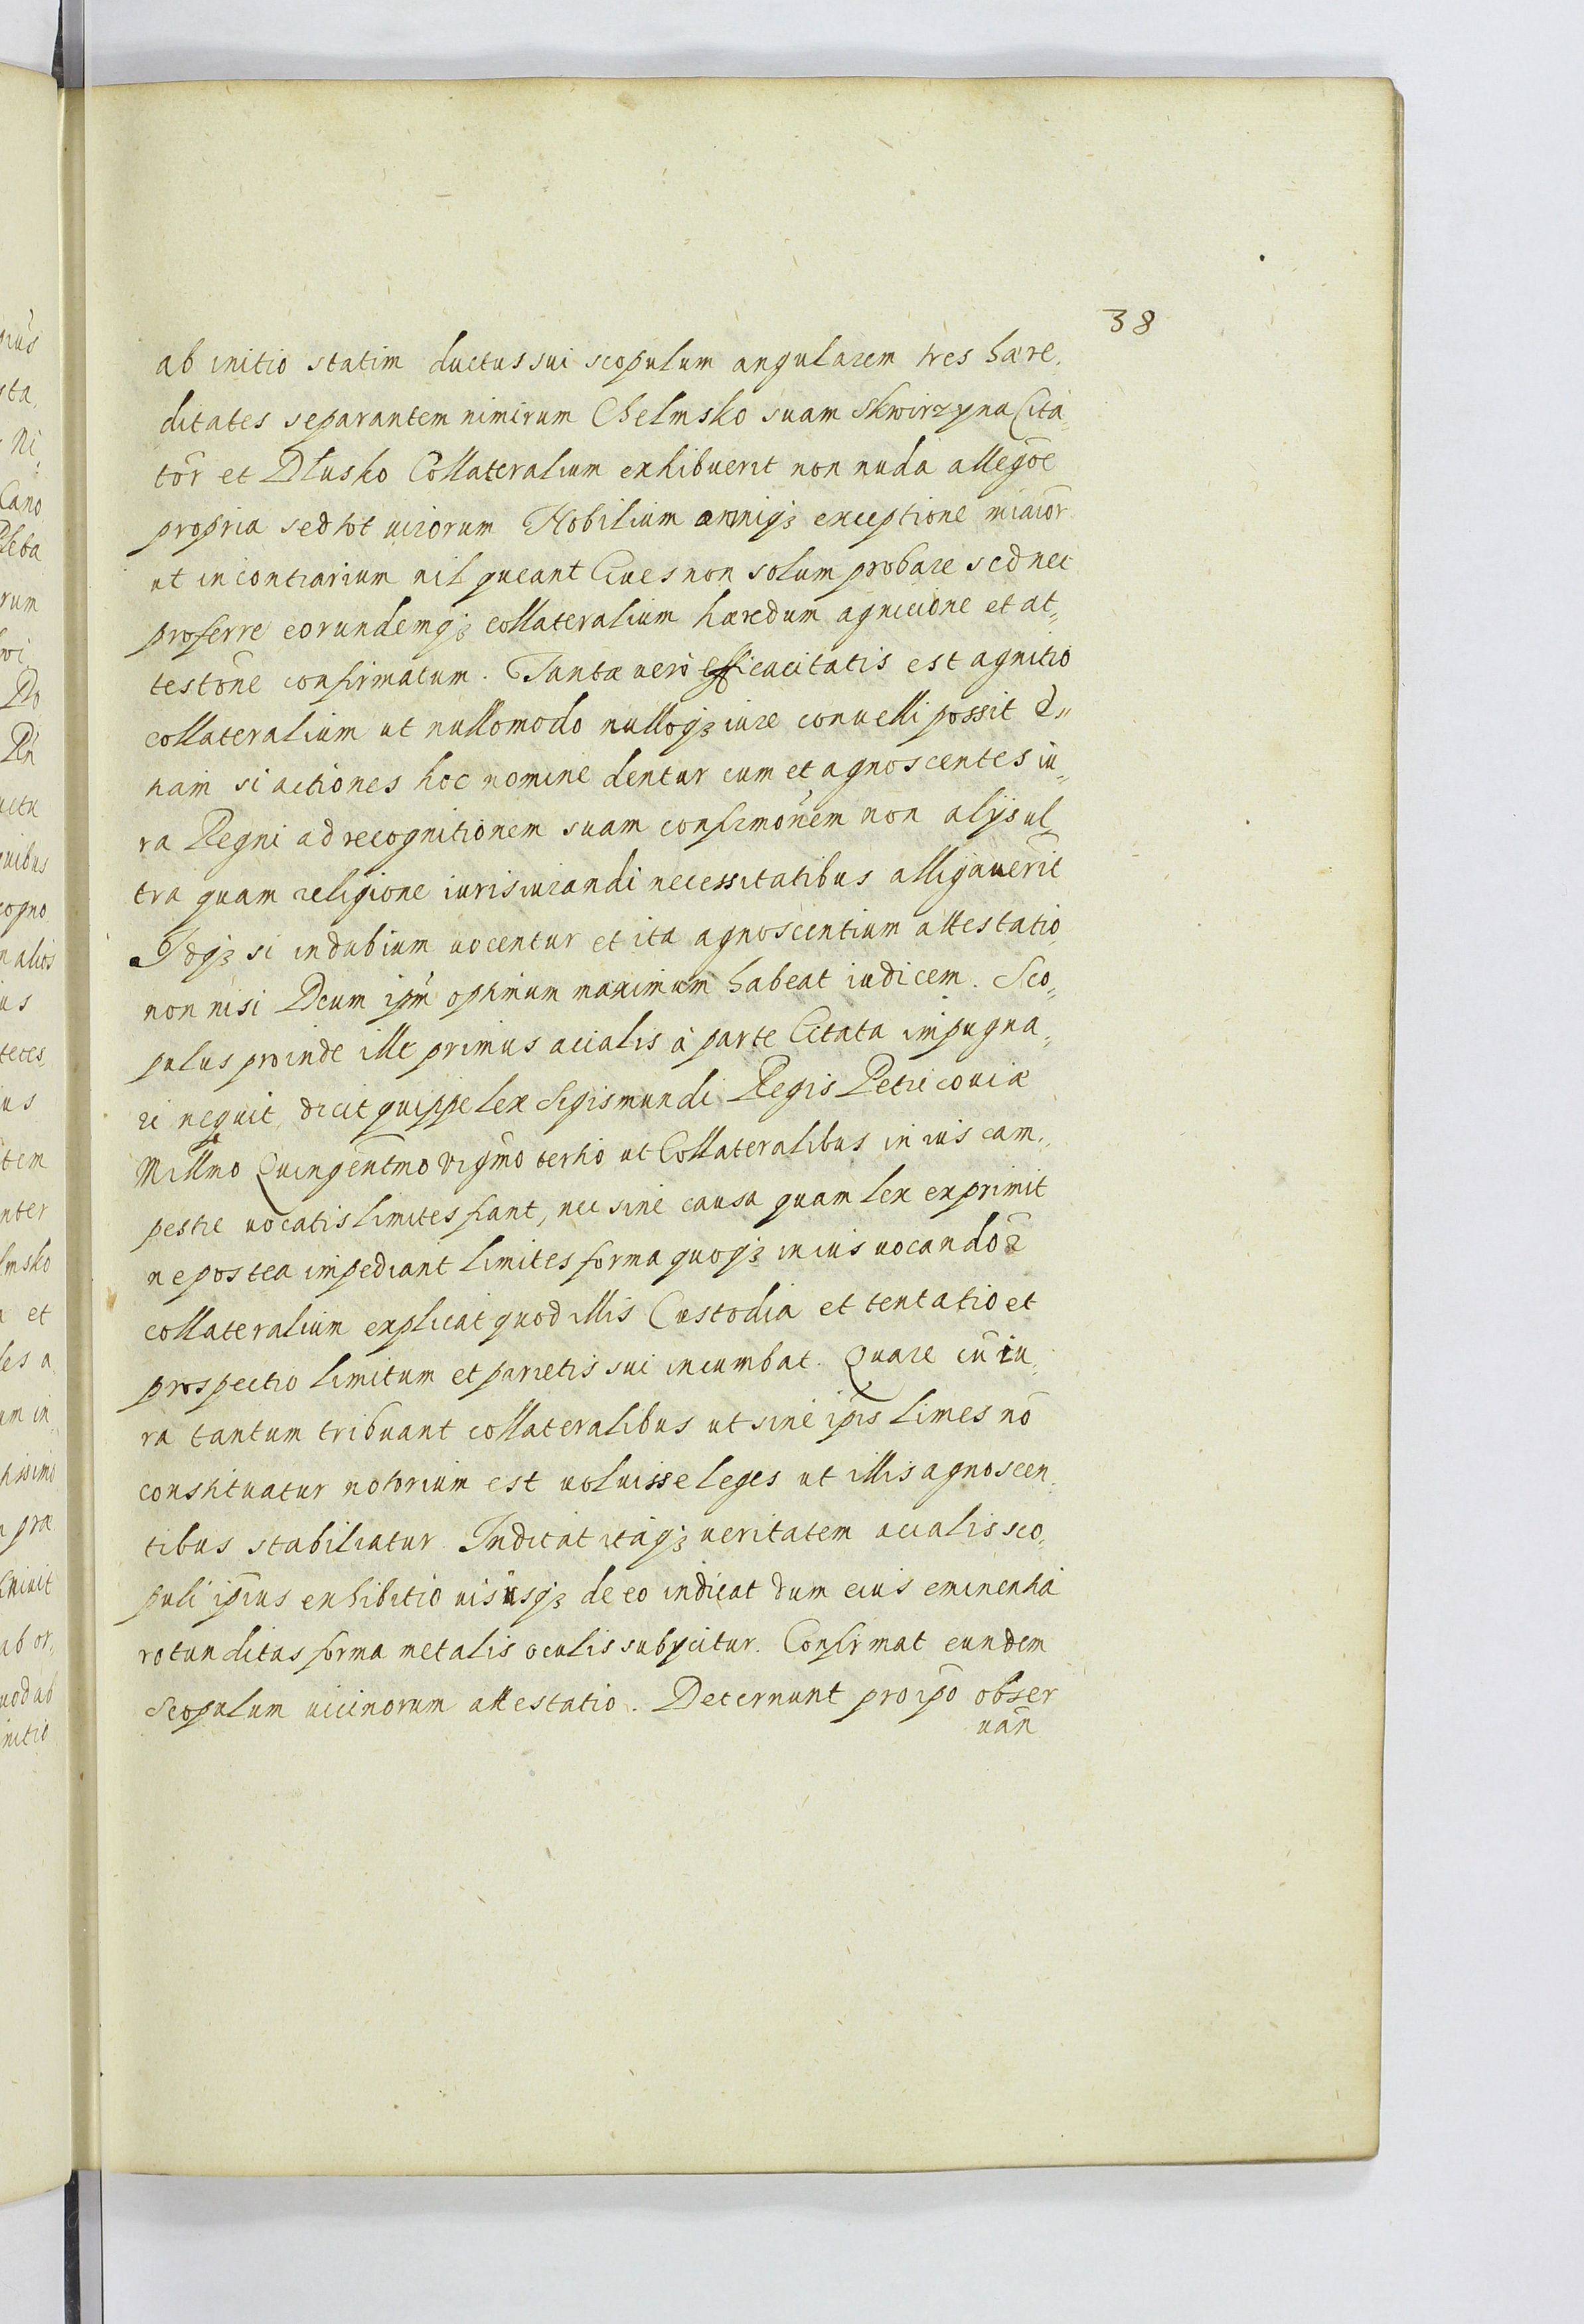 38
ab initio statim ductus sui scopulum angularem tres hære„
ditates separantem nimirum Chelmsko suam Skwirzyna Cita„
tõr et Dłusko Collateralium exhibuerit non nuda allegõe
propria sed tot uirorum Nobilium omniqꝫ exceptione maiõr
ut in contrarium nil queant Ciues non solum probare sed nec
proferre eorundemqꝫ collateralium hæredum agnicione et at„
testõne confirmatum. Tantæ uero efficacitatis est agnitio
collateralium ut nullomodo nulloqꝫ iure conuelli possit
nam si actiones hoc nomine dentur cum et agnoscentes iu„
ra Regni ad recognitionem suam confirmõnem non alijs ul„
tra quam religione iurisiurandi necessitatibus alligauer̃it
Idqꝫ si in dubium uocentur et ita agnoscentium attestatio
non nisi Deum ip̃m optimum maximum habeat iudicem. Sco„
pulus proinde ille primus acialis à parte Citata impugna„
ri nequit, dicit quippe lex Sigismundi Regis Petricouiæ
Mill̃mo Quingent̃mo Vig̃mo tertio ut Collateralibus in ius cam„
pestre uocatis limites fiant, nec sine causa quam lex exprimit
ne postea impediant limites forma quoqꝫ in ius uocandoꝝ
collateralium explicat quod illis Custodia et tentatio et
prospectio limitum et parietis sui incumbat. Quare cũ iu„
ra tantum tribuant collateralibus ut sine ip̃is limes nõ
constituatur notorium est uoluisse leges ut illis agnoscen„
tibus stabiliatur. Indicat itaqꝫ ueritatem acialis sco„
puli ip̃ius exhibitio uisusqꝫ de eo indicat dum eius eminentia
rotunditas forma metalis oculis subijcitur. Confirmat eundem
Scopulum uicinorum attestatio. Decernunt pro ip̃o obser
uañ